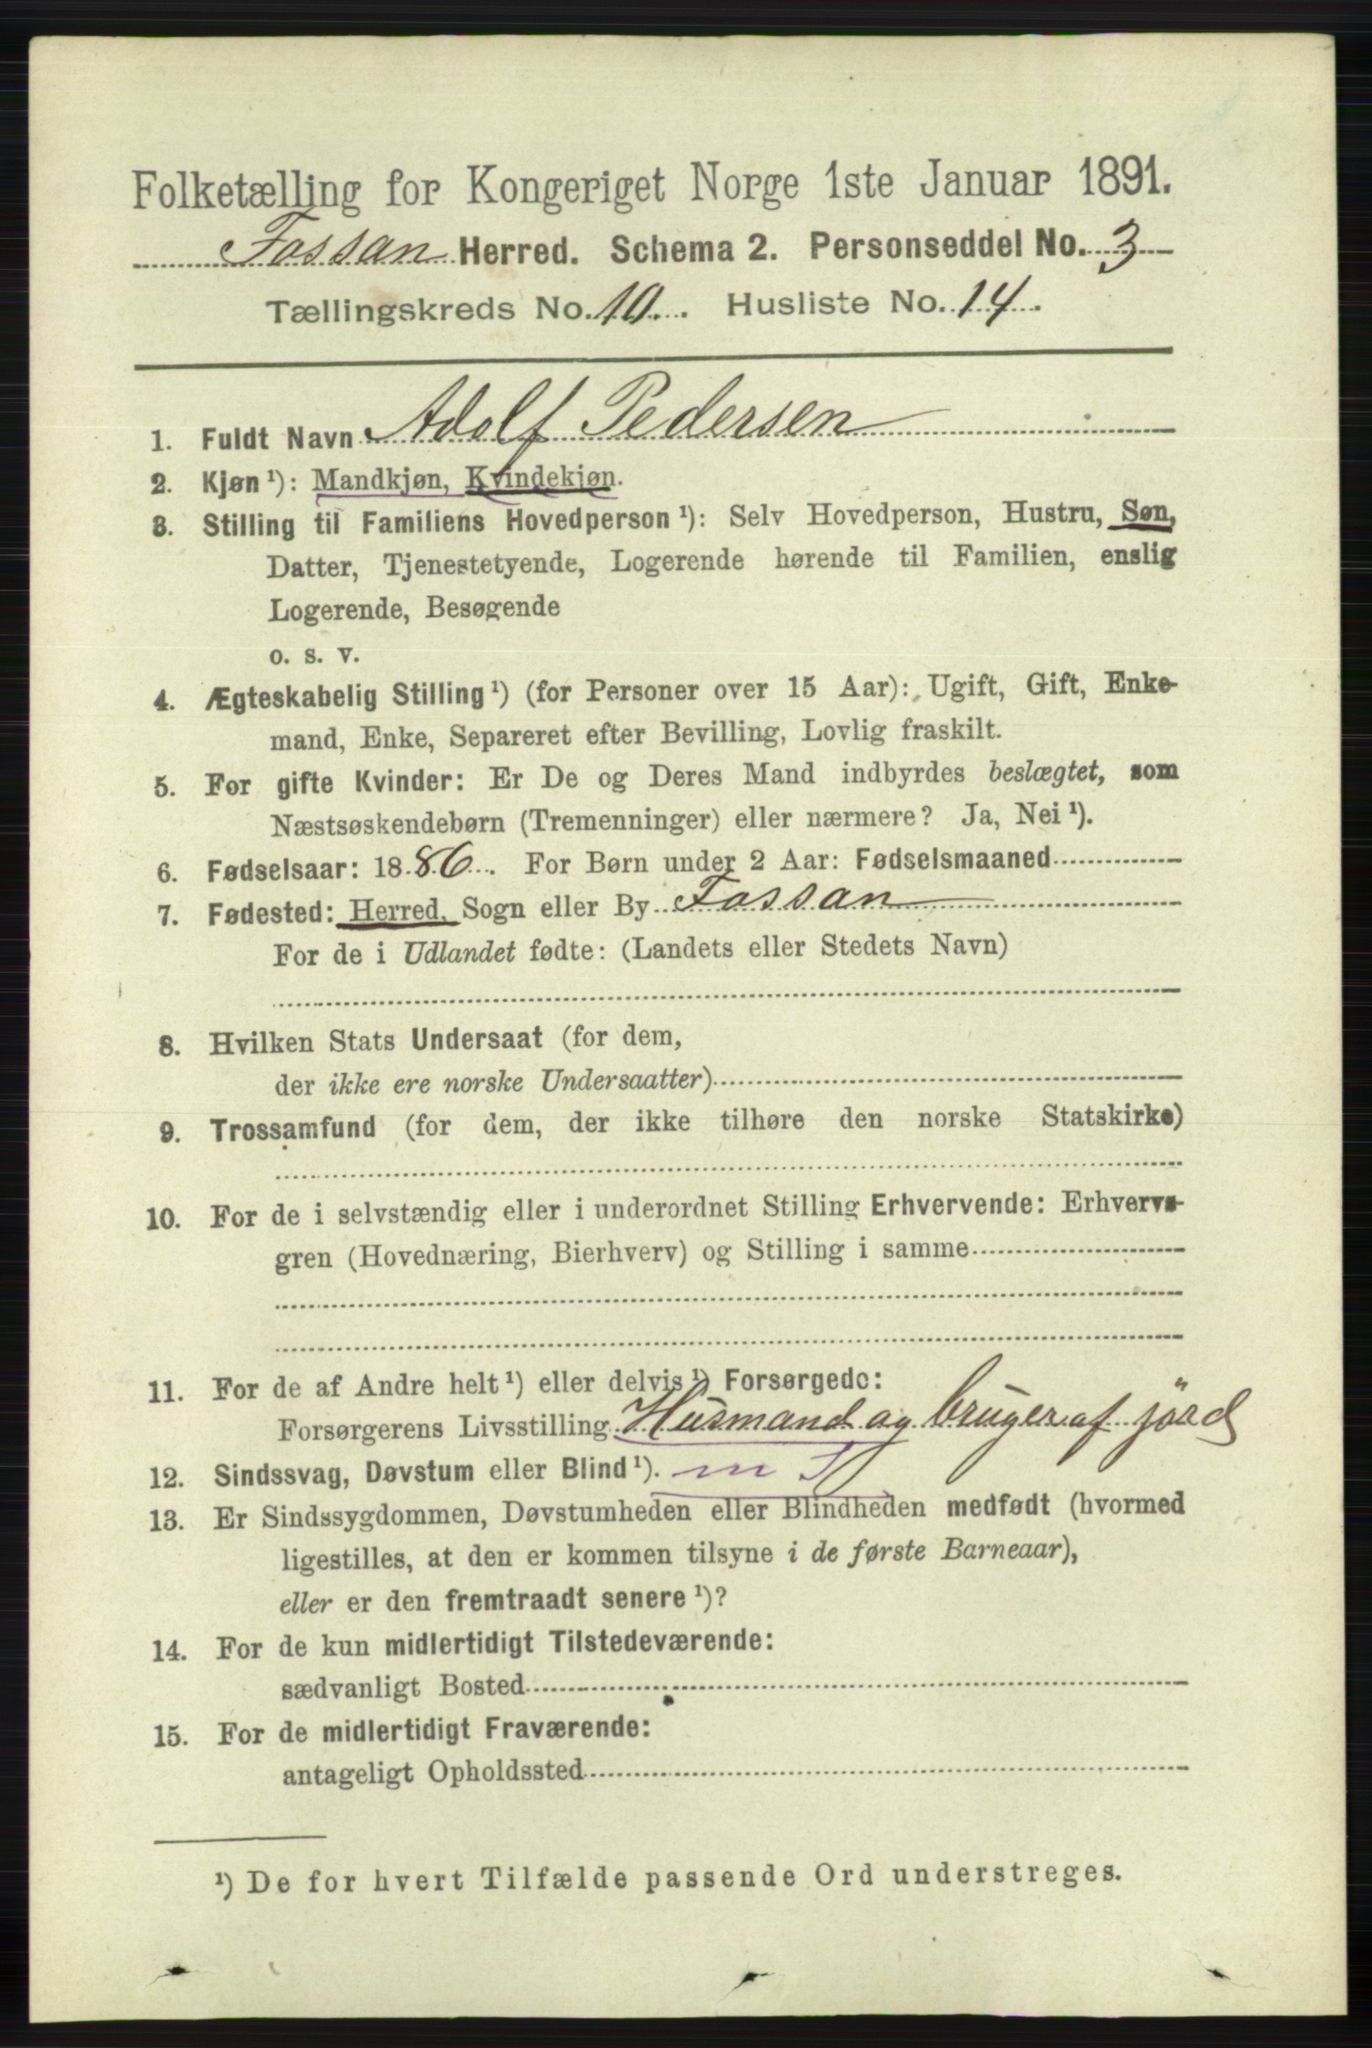 Folketælling for Kongeriget Norge 1ste Januar 1891.
Fossan Herred. Schema 2. Personseddel No. 3
Tællingskreds No. 10. Husliste No. 14.
1. Fuldt Navn Adolf Pedersen
2. Kjøn¹): Mandkjøn, Kvindekjøn.
3. Stilling til Familiens Hovedperson¹): Selv Hovedperson, Hustru, Søn,
Datter, Tjenestetyende, Logerende hørende til Familien, enslig
Logerende, Besøgende
o. s. v.
4. Ægteskabelig Stilling¹) (for Personer over 15 Aar): Ugift, Gift, Enke-
mand, Enke, Separeret efter Bevilling, Lovlig fraskilt.
5. For gifte Kvinder: Er De og Deres Mand indbyrdes beslægtet, som
Næstsøskendebørn (Tremenninger) eller nærmere? Ja, Nei¹).
6. Fødselsaar: 1886. For Børn under 2 Aar: Fødselsmaaned
7. Fødested: Herred, Sogn eller By Fossan
For de i Udlandet fødte: (Landets eller Stedets Navn)
8. Hvilken Stats Undersaat (for dem,
der ikke ere norske Undersaatter)
9. Trossamfund (for dem, der ikke tilhøre den norske Statskirke)
10. For de i selvstændig eller i underordnet Stilling Erhvervende: Erhvervs-
gren (Hovednæring, Bierhverv) og Stilling i samme
11. For de af Andre helt¹) eller delvis¹) Forsørgede:
Forsørgerens Livsstilling Husmand og bruger af jord
12. Sindssvag, Døvstum eller Blind¹). m S
13. Er Sindssygdommen, Døvstumheden eller Blindheden medfødt (hvormed
ligestilles, at den er kommen tilsyne i de første Barneaar),
eller er den fremtraadt senere¹)?
14. For de kun midlertidigt Tilstedeværende:
sædvanligt Bosted
15. For de midlertidigt Fraværende:
antageligt Opholdssted
¹) De for hvert Tilfælde passende Ord understreges.